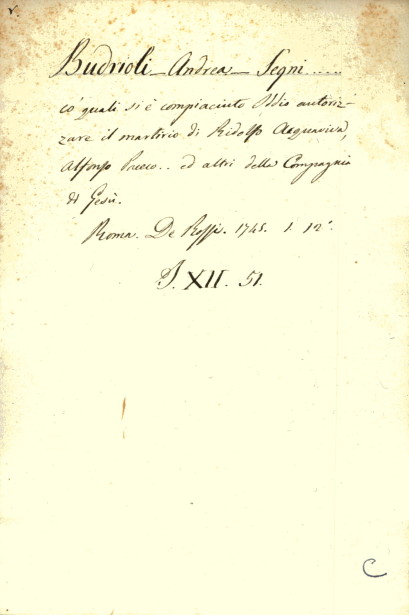 v.
Budrioli - Andrea - Segni ......
co' quali si è compiaciuto Iddio autoriz-
zare il martirio di Ridolfo Acquaviva,
Alfonso Paceco.. ed altri della Compagnia
di Gesù.
Roma. De Rossi. 1745. 1. 12°.
J. XII. 51.
C